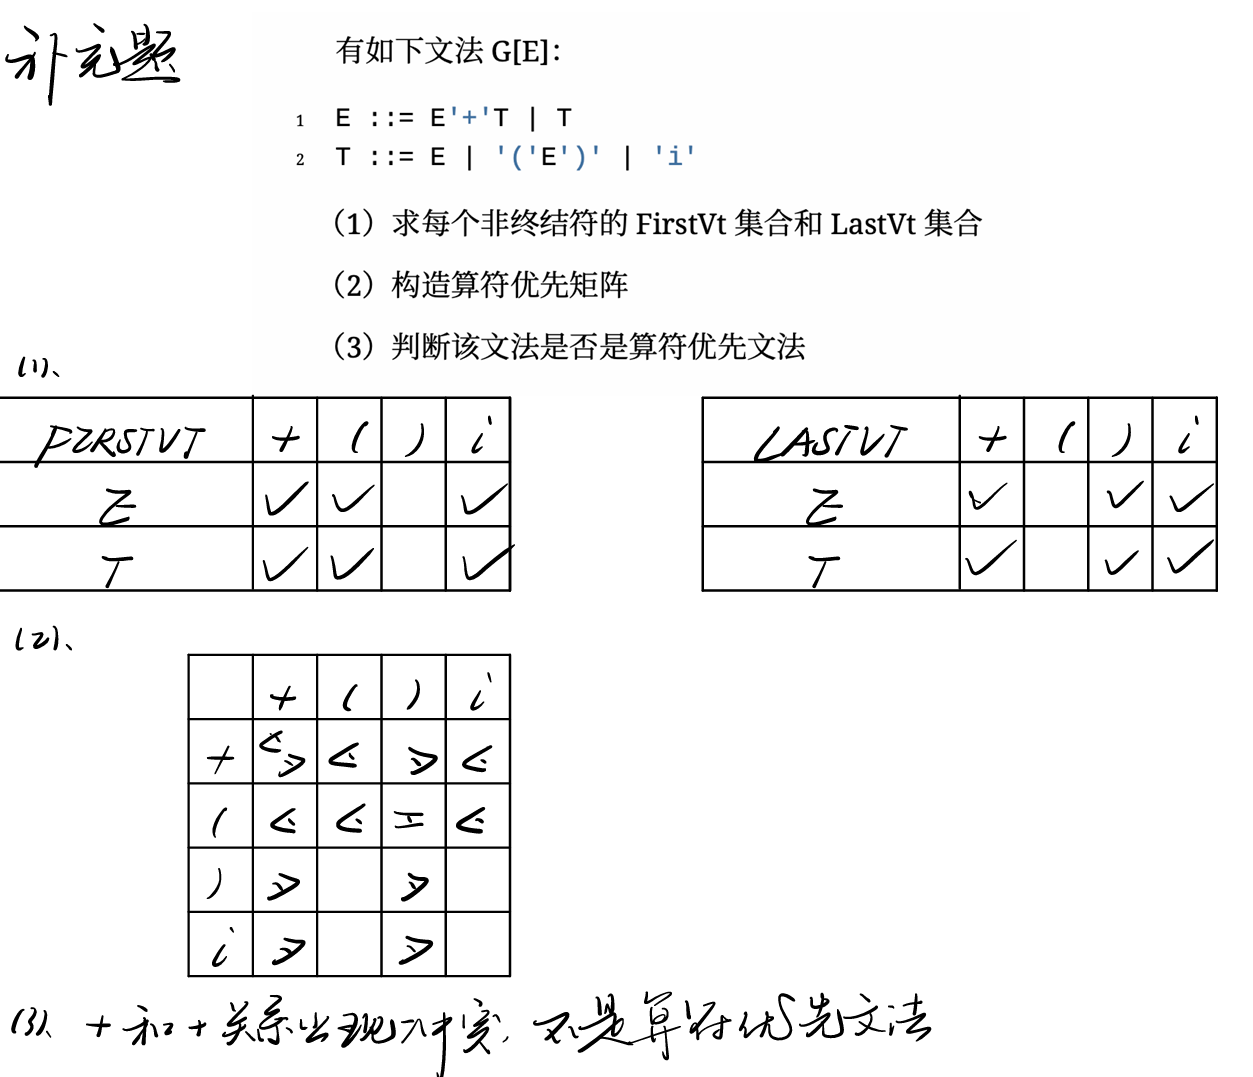 补充题
有如下文法 G[E]:
1 E ::= E'+'T | T
2 T ::= E | '('E')' | 'i'
（1）求每个非终结符的 FirstVt 集合和 LastVt 集合
（2）构造算符优先矩阵
（3）判断该文法是否是算符优先文法
(1)、
FIRSTVT + ( ) i
E ✓ ✓ ✓
T ✓ ✓ ✓
LASTVT + ( ) i
E ✓ ✓ ✓
T ✓ ✓ ✓
(2)、
+ ( ) i
+ ⋖⋗ ⋖ ⋗ ⋖
( ⋖ ⋖ = ⋖
) ⋗ ⋗
i ⋗ ⋗
(3)、+和+关系出现冲突, 不是算符优先文法